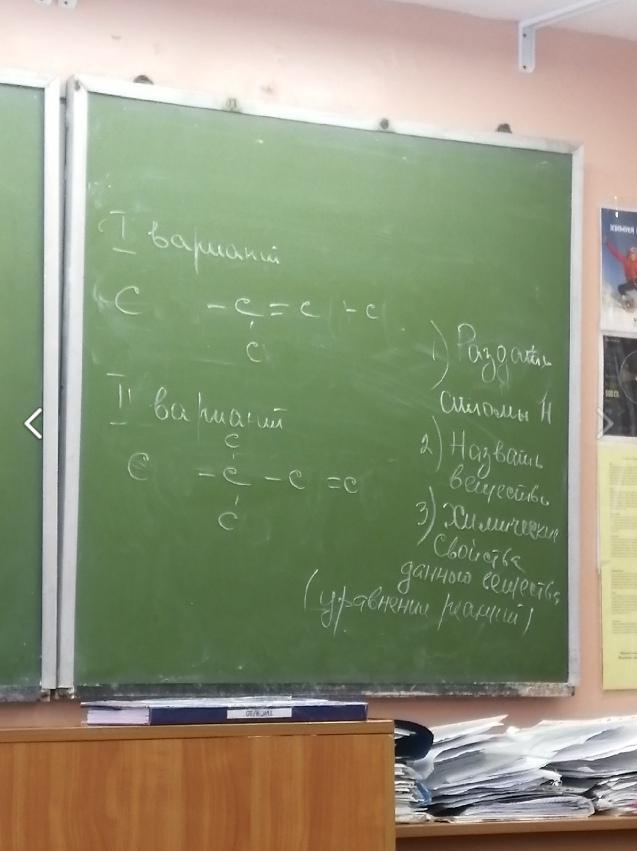 I вариант
C - C = C - C
C
II вариант
C
C - C - C = C
C
1) Раздать
атомы H
2) Назвать
вещество
3) Химические
свойства
данного вещества
(уравнения реакций)